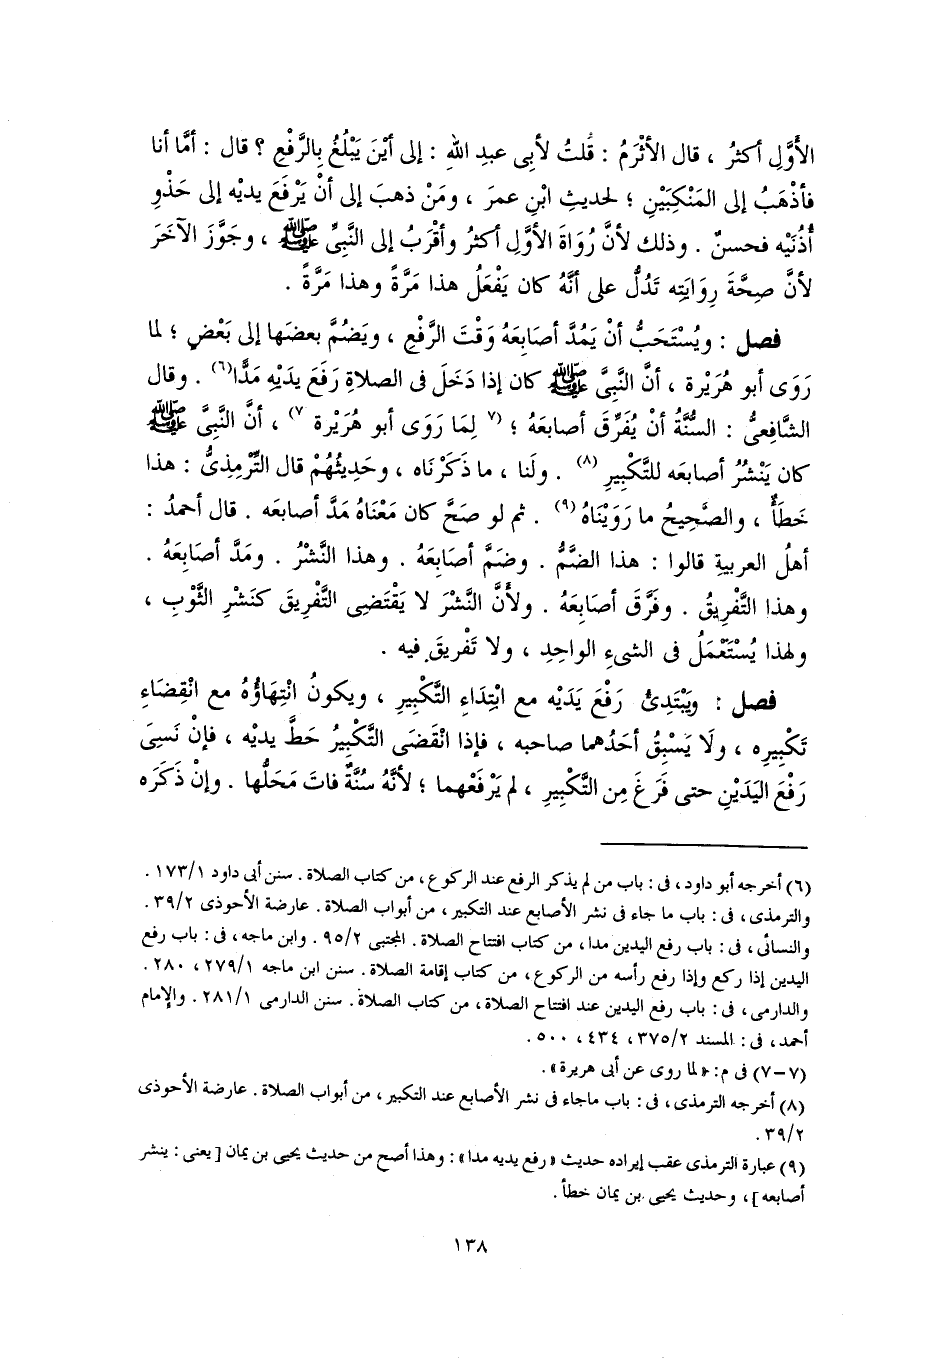 الأَوَّلِ أكثرُ ، قال الأثْرَمُ : قُلتُ لأبِى عبدِ اللهِ : إلى أيْنَ يَبْلُغُ بِالرَّفْعِ ؟ قال : أمَّا أنا
فأذْهَبُ إلى المَنْكِبَيْنِ ؛ لحديثِ ابْنِ عمرَ ، ومَنْ ذهبَ إلى أنْ يَرْفَعَ يديْه إلى حَذْوِ
أُذُنَيْه فحسنٌ . وذلك لأنَّ رُوَاةَ الأوَّلِ أكثرُ وأقْرَبُ إلى النَّبِىِّ ﷺ ، وجَوَّزَ الآخَرَ
لأنَّ صِحَّةَ رِوَايَتِه تَدُلُّ على أنَّهُ كان يَفْعَلُ هذا مَرَّةً وهذا مَرَّةً .
فصل : ويُسْتَحَبُّ أنْ يَمُدَّ أصَابِعَهُ وَقْتَ الرَّفْعِ ، ويَضُمَّ بعضَها إلى بَعْضٍ ؛ لما
رَوَى أبو هُرَيْرة ، أنَّ النَّبِىَّ ﷺ كان إذا دَخَلَ فى الصلاةِ رَفَعَ يدَيْهِ مَدًّا(٦) . وقال
الشَّافِعِىُّ : السُّنَّةُ أنْ يُفَرِّقَ أصابعَهُ ؛ (٧ لِمَا رَوَى أبو هُرَيْرة ٧) ، أنَّ النَّبِىَّ ﷺ
كان يَنْشُرُ أصابعَه للتَّكْبِيرِ (٨) . ولَنا ، ما ذَكَرْنَاه ، وحَدِيثُهُمْ قال التِّرْمِذِىُّ : هذا
خَطَأٌ ، والصَّحِيحُ ما رَوَيْنَاهُ (٩) . ثم لو صَحَّ كان مَعْنَاهُ مَدَّ أصابعَه . قال أحمدُ :
أهلُ العربيةِ قالوا : هذا الضَّمُّ . وضَمَّ أصابعَهُ . وهذا النَّشْرُ . ومَدَّ أصَابعَهُ .
وهذا التَّفْرِيقُ . وفَرَّقَ أصابعَهُ . ولأنَّ النَّشْرَ لا يَقْتَضِى التَّفْرِيقَ كنَشْرِ الثَّوْبِ ،
ولهذا يُسْتَعْمَلُ فى الشىءِ الواحِدِ ، ولا تَفْرِيقَ فيه .
فصل : ويَبْتَدِئُ رَفْعَ يَدَيْه مع ابْتِدَاءِ التَّكْبِيرِ ، ويكونُ انْتِهَاؤُهُ مع انْقِضَاءِ
تَكْبِيرِه ، ولَا يَسْبِقُ أحَدُهما صاحبه ، فإذا انْقَضَى التَّكْبِيرُ حَطَّ يديْه ، فإنْ نَسِىَ
رَفْعَ اليَدَيْنِ حتى فَرَغَ مِن التَّكْبِيرِ ، لم يَرْفَعْهما ؛ لأنَّهُ سُنَّةٌ فاتَ مَحَلُّها . وإنْ ذَكَرَه
(٦) أخرجه أبو داود ، فى : باب من لم يذكر الرفع عند الركوع ، من كتاب الصلاة . سنن أبى داود ١/ ١٧٣ .
والترمذى ، فى : باب ما جاء فى نشر الأصابع عند التكبير ، من أبواب الصلاة . عارضة الأحوذى ٢/ ٣٩ .
والنسائى ، فى : باب رفع اليدين مدا ، من كتاب افتتاح الصلاة . المجتبى ٢/ ٩٥ . وابن ماجه ، فى : باب رفع
اليدين إذا ركع وإذا رفع رأسه من الركوع ، من كتاب إقامة الصلاة . سنن ابن ماجه ١/ ٢٧٩ ، ٢٨٠ .
والدارمى ، فى : باب رفع اليدين عند افتتاح الصلاة ، من كتاب الصلاة . سنن الدارمى ١/ ٢٨١ . والإمام
أحمد ، فى : المسند ٢/ ٣٧٥ ، ٤٣٤ ، ٥٠٠ .
(٧-٧) فى م : « لما روى عن أبى هريرة » .
(٨) أخرجه الترمذى ، فى : باب ماجاء فى نشر الأصابع عند التكبير ، من أبواب الصلاة . عارضة الأحوذى
٢/ ٣٩ .
(٩) عبارة الترمذى عقب إيراده حديث « رفع يديه مدا » : وهذا أصح من حديث يحيى بن يمان [ يعنى : ينشر
أصابعه ] ، وحديث يحيى بن يمان خطأ .
١٣٨